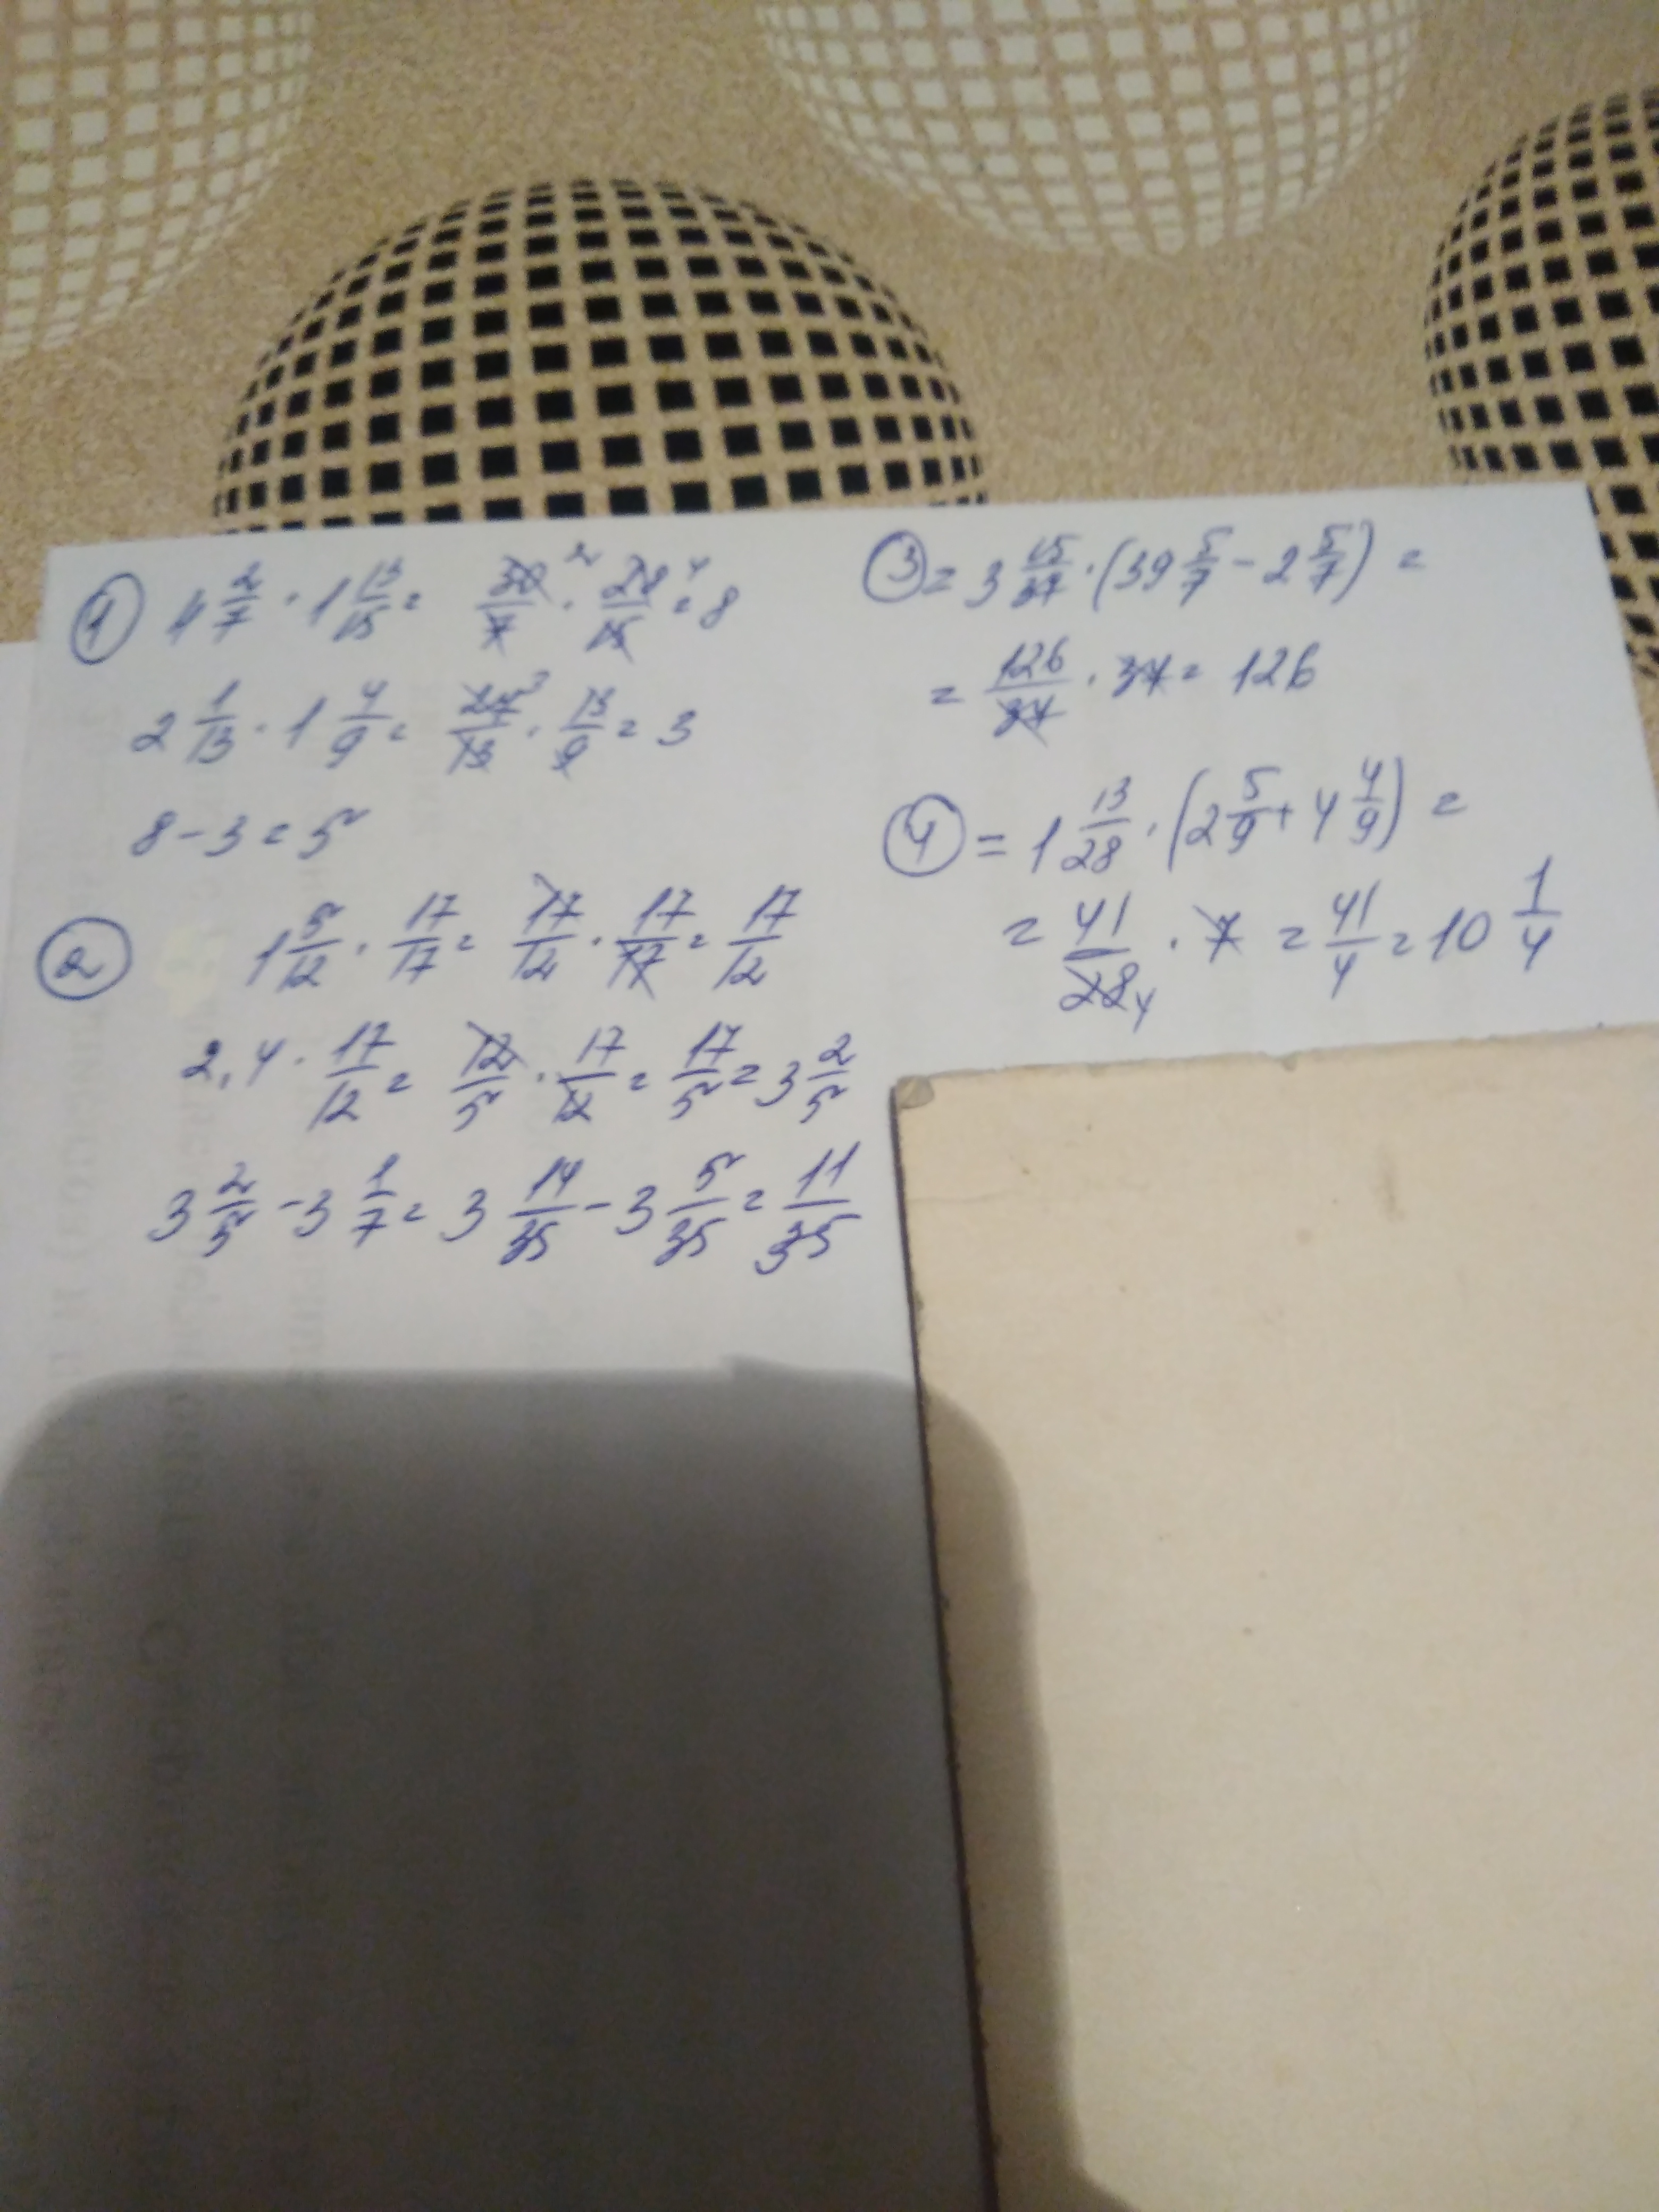 ① 4 2/7 · 1 13/15 = 30/7 · 28/15 = 8
2 1/13 · 1 4/9 = 27/13 · 13/9 = 3
8 - 3 = 5
② 1 5/12 · 17/17 = 17/12 · 17/17 = 17/12
2,4 · 17/12 = 12/5 · 17/12 = 17/5 = 3 2/5
3 2/5 - 3 1/7 = 3 14/35 - 3 5/35 = 11/35
③ = 3 15/37 · (39 5/7 - 2 5/7) =
= 126/37 · 37 = 126
④ = 1 13/28 · (2 5/9 + 4 4/9) =
= 41/28 · 7 = 41/4 = 10 1/4